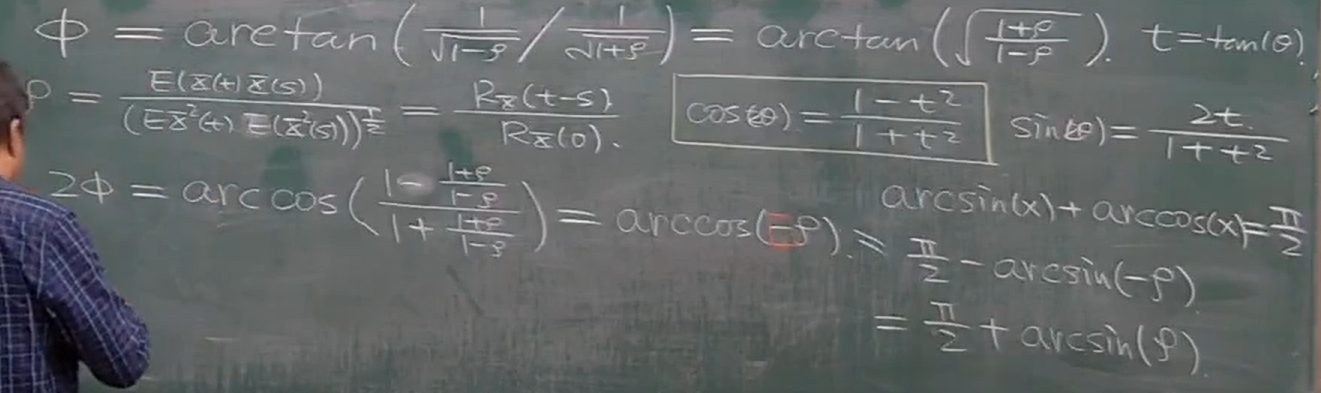 Φ = arctan(1/√(1-ρ) / 1/√(1+ρ)) = arctan(√((1+ρ)/(1-ρ))). t=tan(θ).
ρ = E(X(t)X(s)) / (EX²(t) E(X²(s)))^(1/2) = R_X(t-s) / R_X(0). cos(2θ) = (1-t²)/(1+t²) sin(2θ) = 2t/(1+t²)
2Φ = arccos((1 - (1+ρ)/(1-ρ)) / (1 + (1+ρ)/(1-ρ))) = arccos(-ρ). arcsin(x) + arccos(x) = π/2
= π/2 - arcsin(-ρ)
= π/2 + arcsin(ρ).